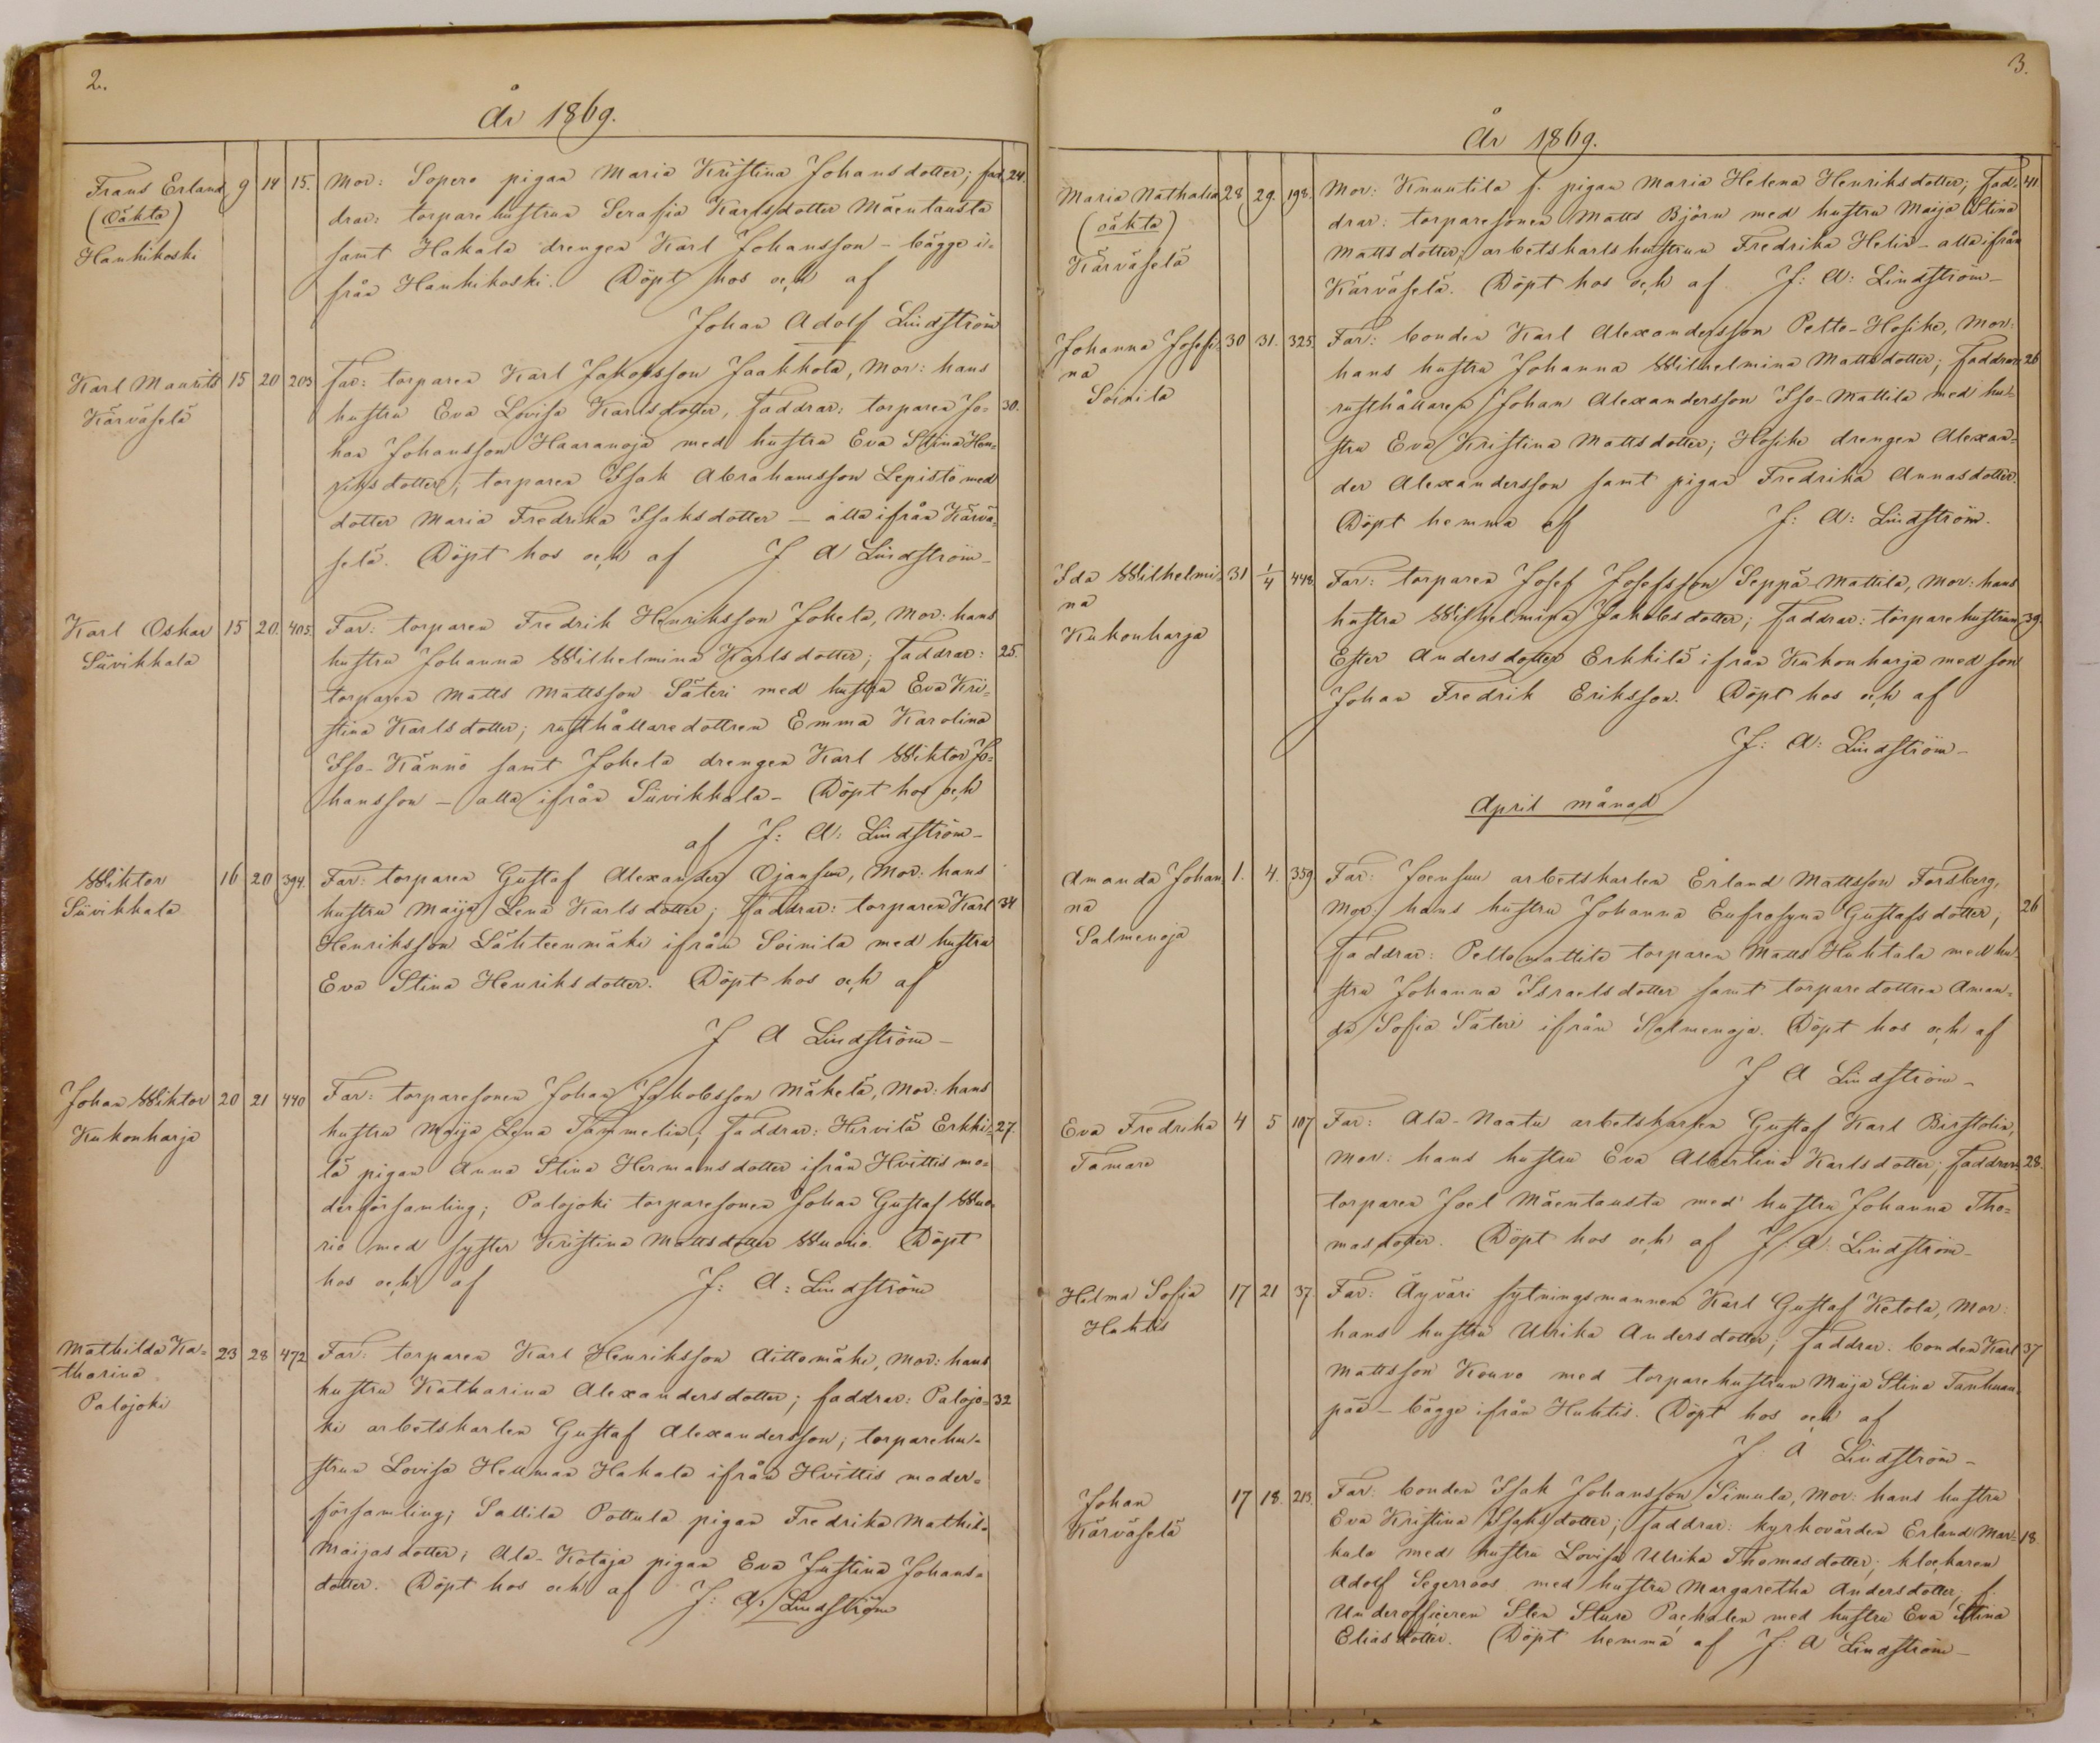 2.
År 1869.
Frans Erland 9 14 15. Mor: Sopero pigan Maria Kristina Johansdotter; fad- 24.
(Oäkta) drar: torpare hustrun Serafia Karlsdotter Mäentausta
Hanhikoski samt Hakala drengen Karl Johansson – bägge i-
från Hanhikoski. Döpt hos och af
Johan Adolf Lindström
Karl Maurits 15 20 203 Far: torparen Karl Jakobsson Jaakkola, Mor: hans
Kärväselä hustru Eva Lovisa Karlsdotter, faddrar: torparen Jo- 30.
han Johansson Haaranoja med hustru Eva Stina Hen-
riksdotter; torparen Isak Abrahamsson Lepistö med
dotter Maria Fredrika Isaksdotter – alla ifrån Kärvä-
selä. Döpt hos och af J A Lindström –
Karl Oskar 15 20. 405. Far: torparen Fredrik Henriksson Jokela, Mor: hans
Siivikkala hustru Johanna Wilhelmina Karlsdotter; faddrar: 25.
torparen Matts Mattsson Säteri med hustru Eva Kri-
stina Karlsdotter; rusthållaredottren Emma Karolina
Iso-Kännö samt Jokela drengen Karl Wiktor Jo-
hansson – alla ifrån Siivikkala – Döpt hos och
af J: A: Lindström –
Wiktor 16 20 394. Far: torparen Gustaf Alexander Ojansuu, Mor: hans
Siivikkala hustru Maija Lena Karlsdotter; faddrar: torparen Karl 34
Henriksson Lähteenmäki ifrån Soinila med hustru
Eva Stina Henriksdotter. Döpt hos och af
J A Lindström –
Johan Wiktor 20 21 440 Far: torparesonen Johan Jakobsson Mäkelä, Mor: hans
Kukonharja hustru Maija Lena Tammelin; faddrar: Hirvilä Erkki- 27.
lä pigan Anna Stina Hermansdotter ifrån Hvittis mo-
derförsamling; Palojoki torparesonen Johan Gustaf Wuo-
rio med syster Kristina Mattsdotter Wuorio. Döpt
hos och af J: A: Lindström
Mathilda Ka- 23 28 472 Far: torparen Karl Henriksson Aittomäki, Mor: hans
tharina hustru Katharina Alexandersdotter; faddrar: Palojo- 32
Palojoki ki arbetskarlen Gustaf Alexandersson; torparehu-
strun Lovisa Hellman Hakala ifrån Hvittis moder-
församling; Sallila Pottula pigan Fredrika Mathil-
Maijasdotter; Ala-Kotaja pigan Eva Justina Johans-
dotter. Döpt hos och af J: A: Lindström
3.
År 1869.
Maria Nathalia 28 29. 198. Mor: Knuutila f. pigan Maria Helena Henriksdotter; fad- 41.
(oäkta) drar: torparesonen Matts Björn med hustru Maija Stina
Kärväselä Mattsdotter; arbetskarlshustrun Fredrika Helin – alla ifrån
Kärväselä. Döpt hos och af J: A: Lindström –
Johanna Josefi- 30 31. 325. Far: bonden Karl Alexandersson Pelto-Hosike, Mor:
na hans hustru Johanna Wilhelmina Mattsdotter; faddrar: 26
Soinila rusthållaren Johan Alexandersson Iso-Mattila med hu-
stru Eva Kristina Mattsdotter; Hosike drengen Alexan-
der Alexandersson samt pigan Fredrika Annasdotter.
Döpt hemma af J: A: Lindström.
Ida Wilhelmi- 31 1/4 448 Far: torparen Josef Josefsson Seppä-Mattila, Mor: hans
na hustru Wilhelmina Jakobsdotter; faddrar: torparehustrun 39.
Kukonharja Ester Andersdotter Erkkilä ifrån Kukonharja med son
Johan Fredrik Eriksson. Döpt hos och af
J: A: Lindström –
April månad
Amanda Johan- 1. 4. 359 Far: Joensuu arbetskarlen Erland Mattsson Forsberg,
na Mor: hans hustru Johanna Eufrosyna Gustafsdotter; 26
Salmenoja faddrar: Peltomattila torparen Matts Huhtala med hu-
stru Johanna Israelsdotter samt torparedottren Aman-
da Sofia Säteri ifrån Salmenoja. Döpt hos och af
J A Lindström –
Eva Fredrika 4 5 107 Far: Ala-Naatu arbetskarlen Gustaf Karl Birstolin,
Tamare Mor: hans hustru Eva Albertina Karlsdotter; faddrar: 28.
torparen Joel Mäentausta med hustru Johanna Tho-
masdotter. Döpt hos och af J: A: Lindström –
Hilma Sofia 17 21 37 Far: Äyväri sytningsmannen Karl Gustaf Ketola, Mor:
Huhtis hans hustru Ulrika Andersdotter; faddrar: bonden Karl 37
Mattsson Kouvo med torparehustrun Maija Stina Tanhuan-
pää – bägge ifrån Huhtis. Döpt hos och af
J. A Lindström –
Johan 17 18. 213. Far: bonden Isak Johansson Simula, Mor: hans hustru
Kärväselä Eva Kristina Isaksdotter; faddrar: kyrkovärden Erland Mar- 18.
kula med hustru Lovisa Ulrika Thomasdotter; klockaren
Adolf Segerroos med hustru Margaretha Andersdotter; f.
Underofficeren Sten Sture Pachalen med hustru Eva Stina
Eliasdotter. Döpt hemma af J: A Lindström –